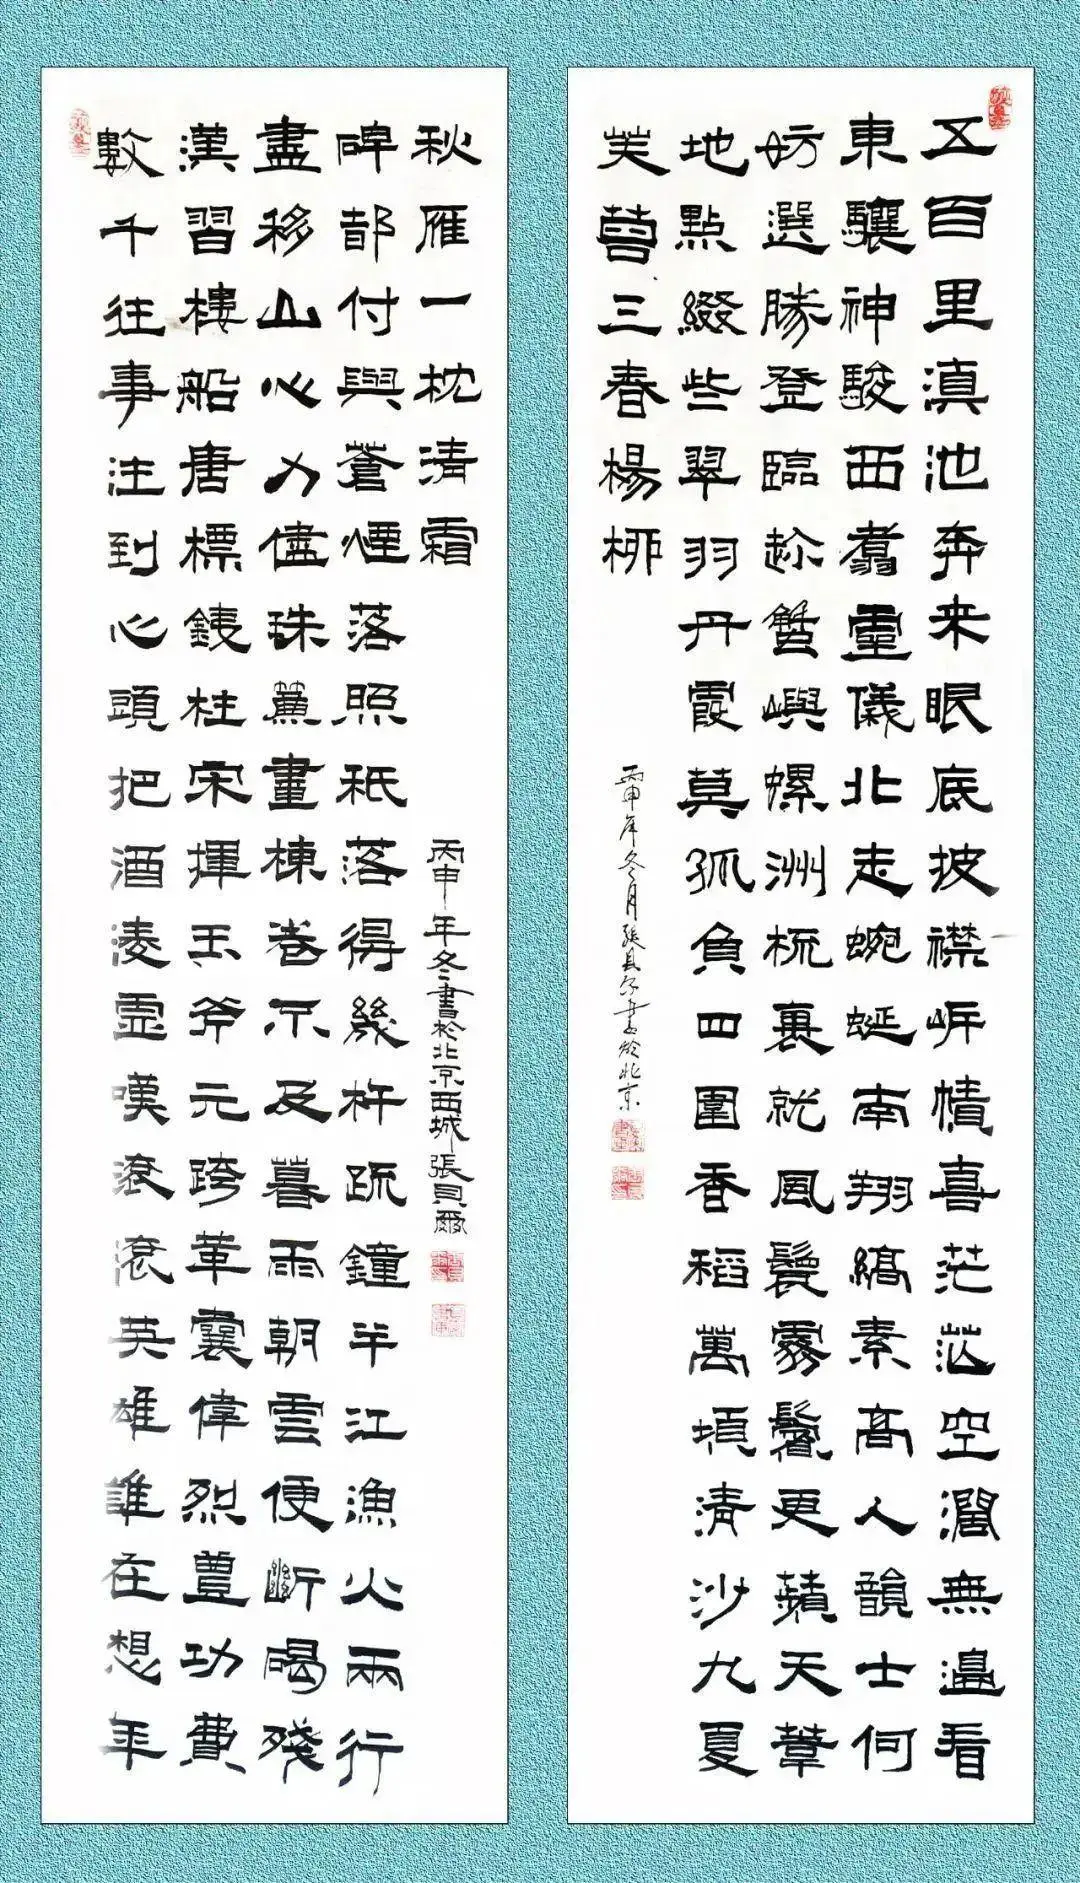 五百里滇池奔来眼底披襟岸幘喜茫茫空濶無邊看
東驤神駿西翥靈儀北走蜿蜒南翔縞素高人韻士何
妨選勝登臨趁蟹嶼螺洲梳裹就風鬟霧鬢更蘋天葦
地點綴些翠羽丹霞莫孤負四圍香稻萬頃清沙九夏
芙蓉三春楊柳
丙申年冬月張貝尔書於北京
數千往事注到心頭把酒凌虛嘆滾滾英雄誰在想年
漢習樓船唐標鐵柱宋揮玉斧元跨革囊偉烈豐功費
盡移山心力儘珠簾畫棟卷不及暮雨朝雲便斷碣殘
碑都付與蒼煙落照秖落得幾杵疏鐘半江漁火兩行
秋雁一枕清霜
丙申年冬書於北京西城張貝爾